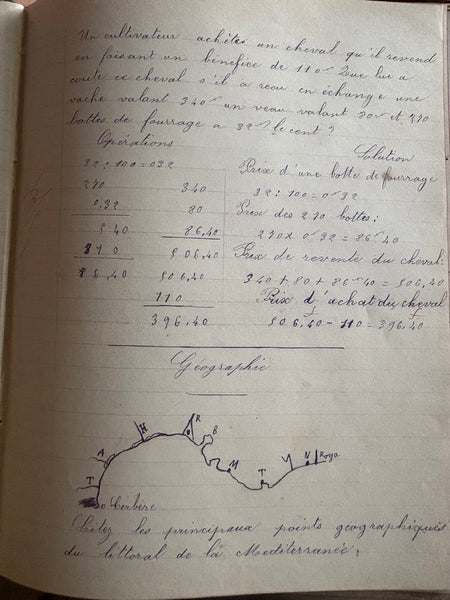 Un cultivateur achète un cheval qu'il revend
en faisant un bénéfice de 110ᶠ. Que lui a
coûté ce cheval s'il a reçu en échange une
vache valant 340ᶠ un veau valant 80ᶠ et 270
bottes de fourrage a 32ᶠ le cent ?
Opérations
32 : 100 = 0 32
270
0,32
5 40
8 1 0
8 6,40
340
80
86,40
506,40
506,40
110
396,40
Solution
Prix d'une botte de fourrage
32 : 100 = 0ᶠ32
Prix des 270 bottes :
270 x 0ᶠ32 = 86ᶠ40
Prix de revente du cheval :
340 + 80 + 86ᶠ40 = 506,40
Prix d'achat du cheval
506,40 - 110 = 396,40
Géographie
T
A
H
R
B
M
T
V
N
Roya
Cerbère
Citez les principaux points géographiques
du littoral de la Méditerranée.